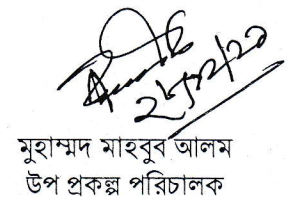 ২৮/১২/২০
মুহাম্মদ মাহবুব আলম
উপ প্রকল্প পরিচালক